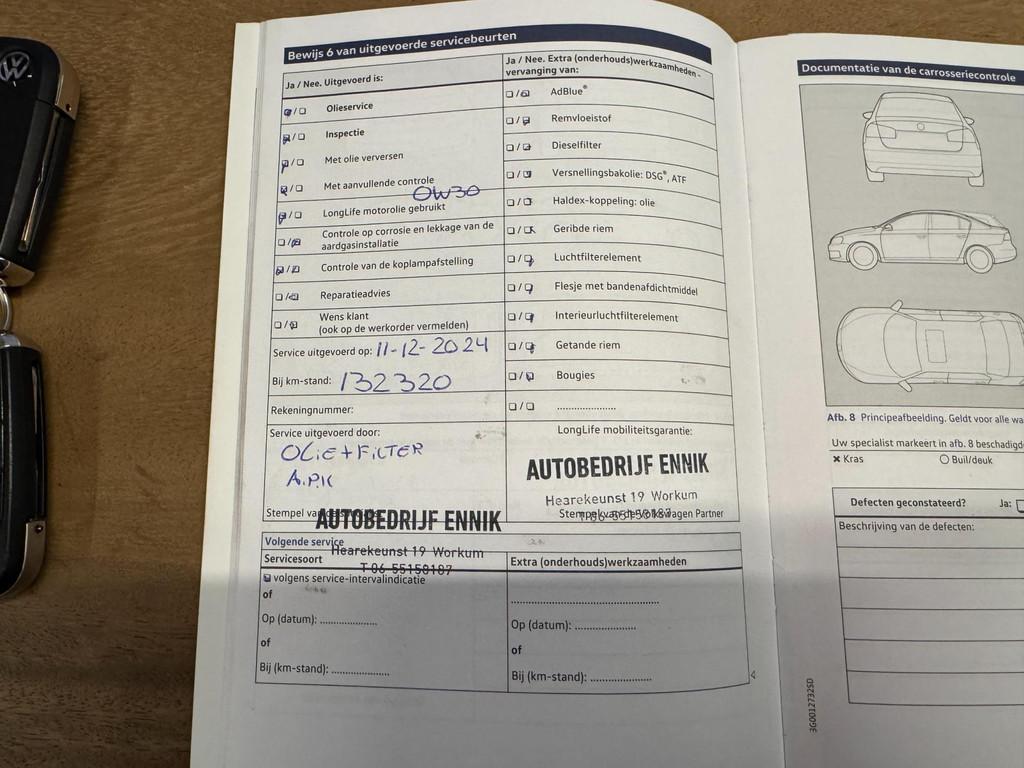 Bewijs 6 van uitgevoerde servicebeurten
Ja / Nee. Uitgevoerd is:
Olieservice
Inspectie
Met olie verversen
Met aanvullende controle
0W30
LongLife motorolie gebruikt
Controle op corrosie en lekkage van de
aardgasinstallatie
Controle van de koplampafstelling
Reparatieadvies
Wens klant
(ook op de werkorder vermelden)
Service uitgevoerd op: 11-12-2024
Bij km-stand: 132320
Rekeningnummer:
Service uitgevoerd door:
OLiE + FiLTER
A.P.K
Stempel van
AUTOBEDRIJF ENNIK
Hearekeunst 19 Workum
T 06 55158187
Ja / Nee. Extra (onderhouds)werkzaamheden -
vervanging van:
AdBlue®
Remvloeistof
Dieselfilter
Versnellingsbakolie: DSG®, ATF
Haldex-koppeling: olie
Geribde riem
Luchtfilterelement
Flesje met bandenafdichtmiddel
Interieurluchtfilterelement
Getande riem
Bougies
....................
LongLife mobiliteitsgarantie:
AUTOBEDRIJF ENNIK
Hearekeunst 19 Workum
T 06 55158187
Stempel van de Volkswagen Partner
Volgende service
Servicesoort
volgens service-intervalindicatie
of
Op (datum): ....................
of
Bij (km-stand): ....................
Extra (onderhouds)werkzaamheden
..................................................
Op (datum): ....................
of
Bij (km-stand): ....................
Documentatie van de carrosseriecontrole
Afb. 8 Principeafbeelding. Geldt voor alle wa
Uw specialist markeert in afb. 8 beschadigd
× Kras
○ Buil/deuk
Defecten geconstateerd? Ja:
Beschrijving van de defecten:
3G0012732SD